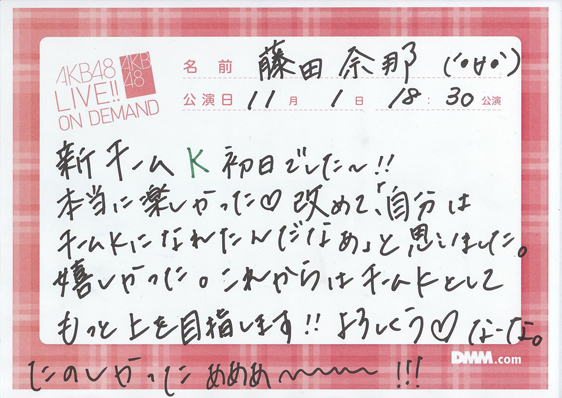 AKB48
LIVE!!
ON DEMAND
AKB
48
名前 藤田奈那 (´°ㅂ°`)
公演日 11月1日 18:30公演
新チームK初日でした〜!!
本当に楽しかった♡改めて、「自分は
チームKになれたんだなぁ」と思いました。
嬉しかった。これからはチームKとして
もっと上を目指します!!よろしくぅ♡なーな。
DMM.com
たのしかったぁぁぁ〜〜〜!!!